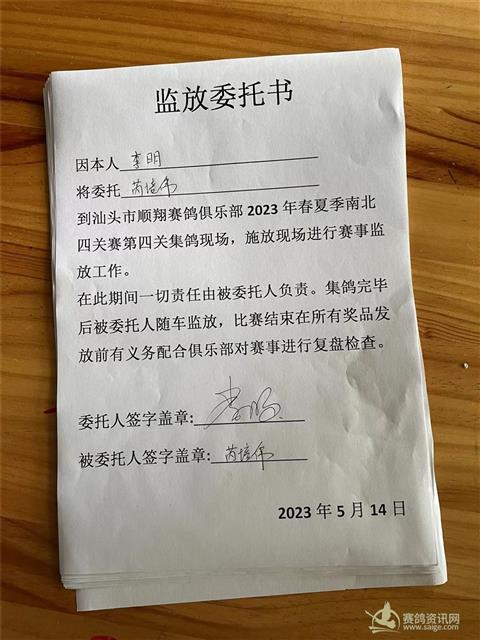 监放委托书
因本人 李明
将委托 芮培伟
到汕头市顺翔赛鸽俱乐部 2023 年春夏季南北
四关赛第四关集鸽现场，施放现场进行赛事监
放工作。
在此期间一切责任由被委托人负责。集鸽完毕
后被委托人随车监放，比赛结束在所有奖品发
放前有义务配合俱乐部对赛事进行复盘检查。
委托人签字盖章: 李明
被委托人签字盖章: 芮培伟
2023 年 5 月 14 日
赛鸽资讯网
www.saige.com